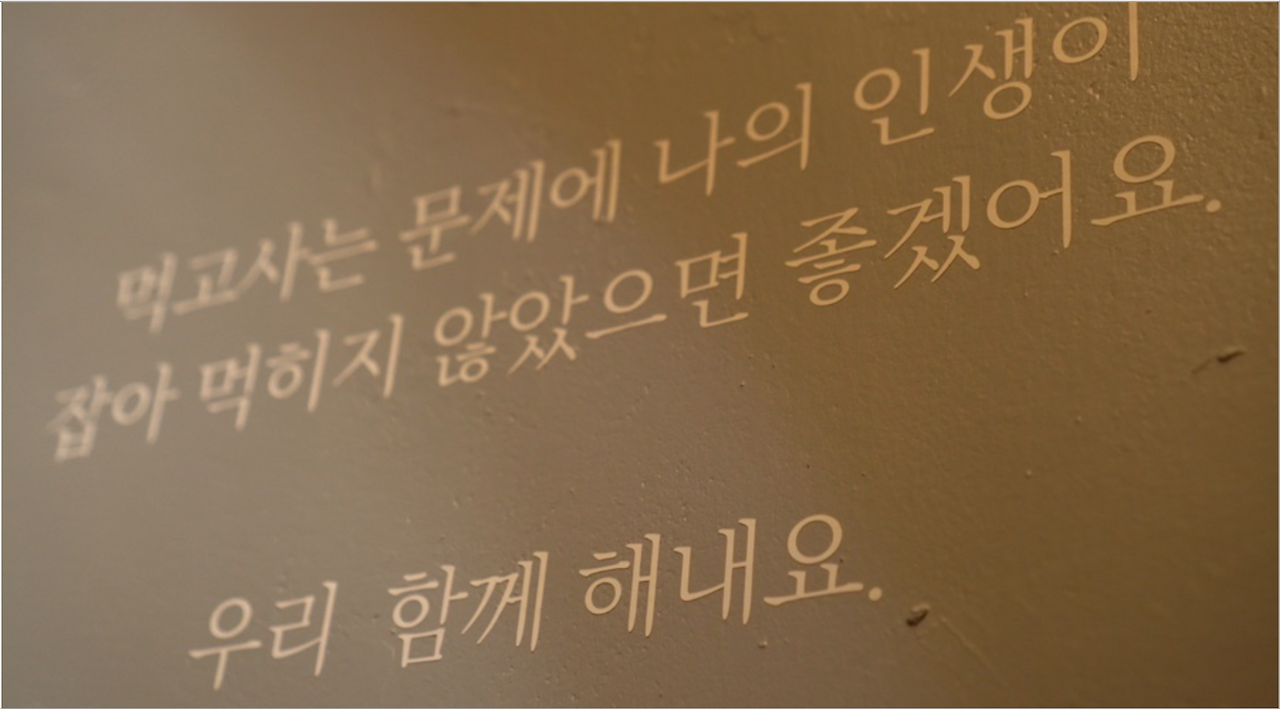 먹고사는 문제에 나의 인생이
잡아 먹히지 않았으면 좋겠어요.
우리 함께 해내요.